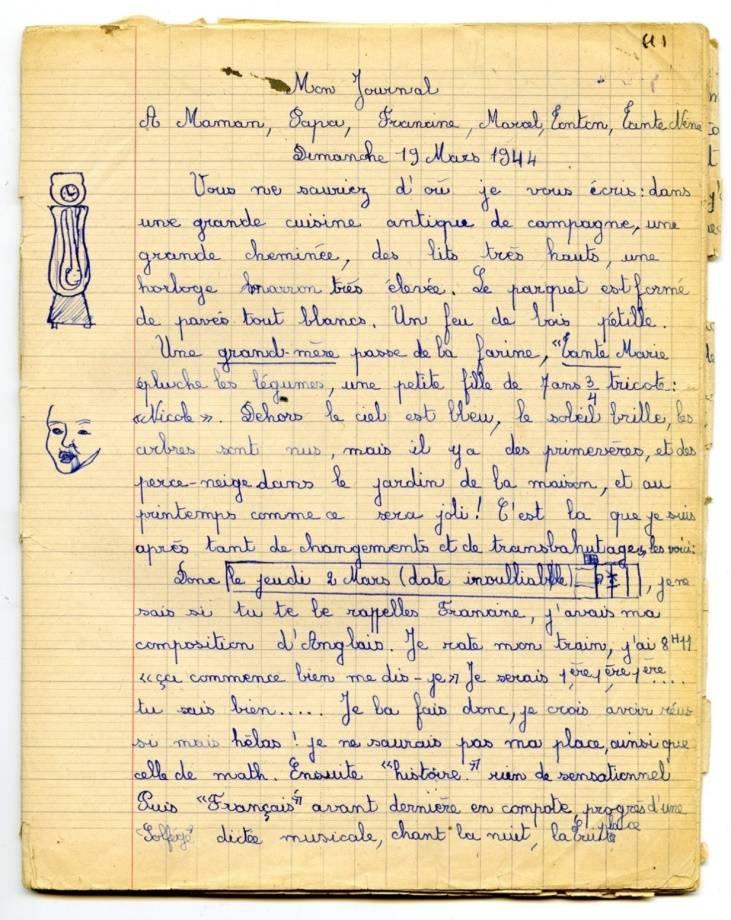 Mon Journal
A Maman, Papa, Francine, Marcel, Tonton, Tante Nene
Dimanche 19 Mars 1944
Vous ne sauriez d'où je vous écris : dans
une grande cuisine antique de campagne, une
grande cheminée, des lits très hauts, une
horloge marron très élevée. Le parquet est formé
de pavés tout blancs. Un feu de bois pétille.
Une grand-mère passe de la farine, "Tante Marie
épluche les légumes, une petite fille de 7 ans 3/4 tricote :
«Nicole». Dehors le ciel est bleu, le soleil brille, les
arbres sont nus, mais il y a des primevères, et des
perce-neige dans le jardin de la maison, et au
printemps comme ce sera joli ! C'est la que je suis
après tant de changements et de transbahutages, les voici :
Donc le jeudi 2 Mars (date inoubliable), je ne
sais si tu te le rappelles Francine, j'avais ma
composition d'Anglais. Je rate mon train, j'ai 8H11
«ça commence bien me dis-je» Je serais 1ère, 1ère, 1ère....
tu sais bien..... Je la fais donc, je crois avoir réus
si mais hélas ! je ne saurais pas ma place, ainsi que
celle de math. Ensuite "histoire." rien de sensationnel
Puis "Français" avant dernière en compote, progrès d'une place
"Solfège" dictée musicale, chant la nuit, la